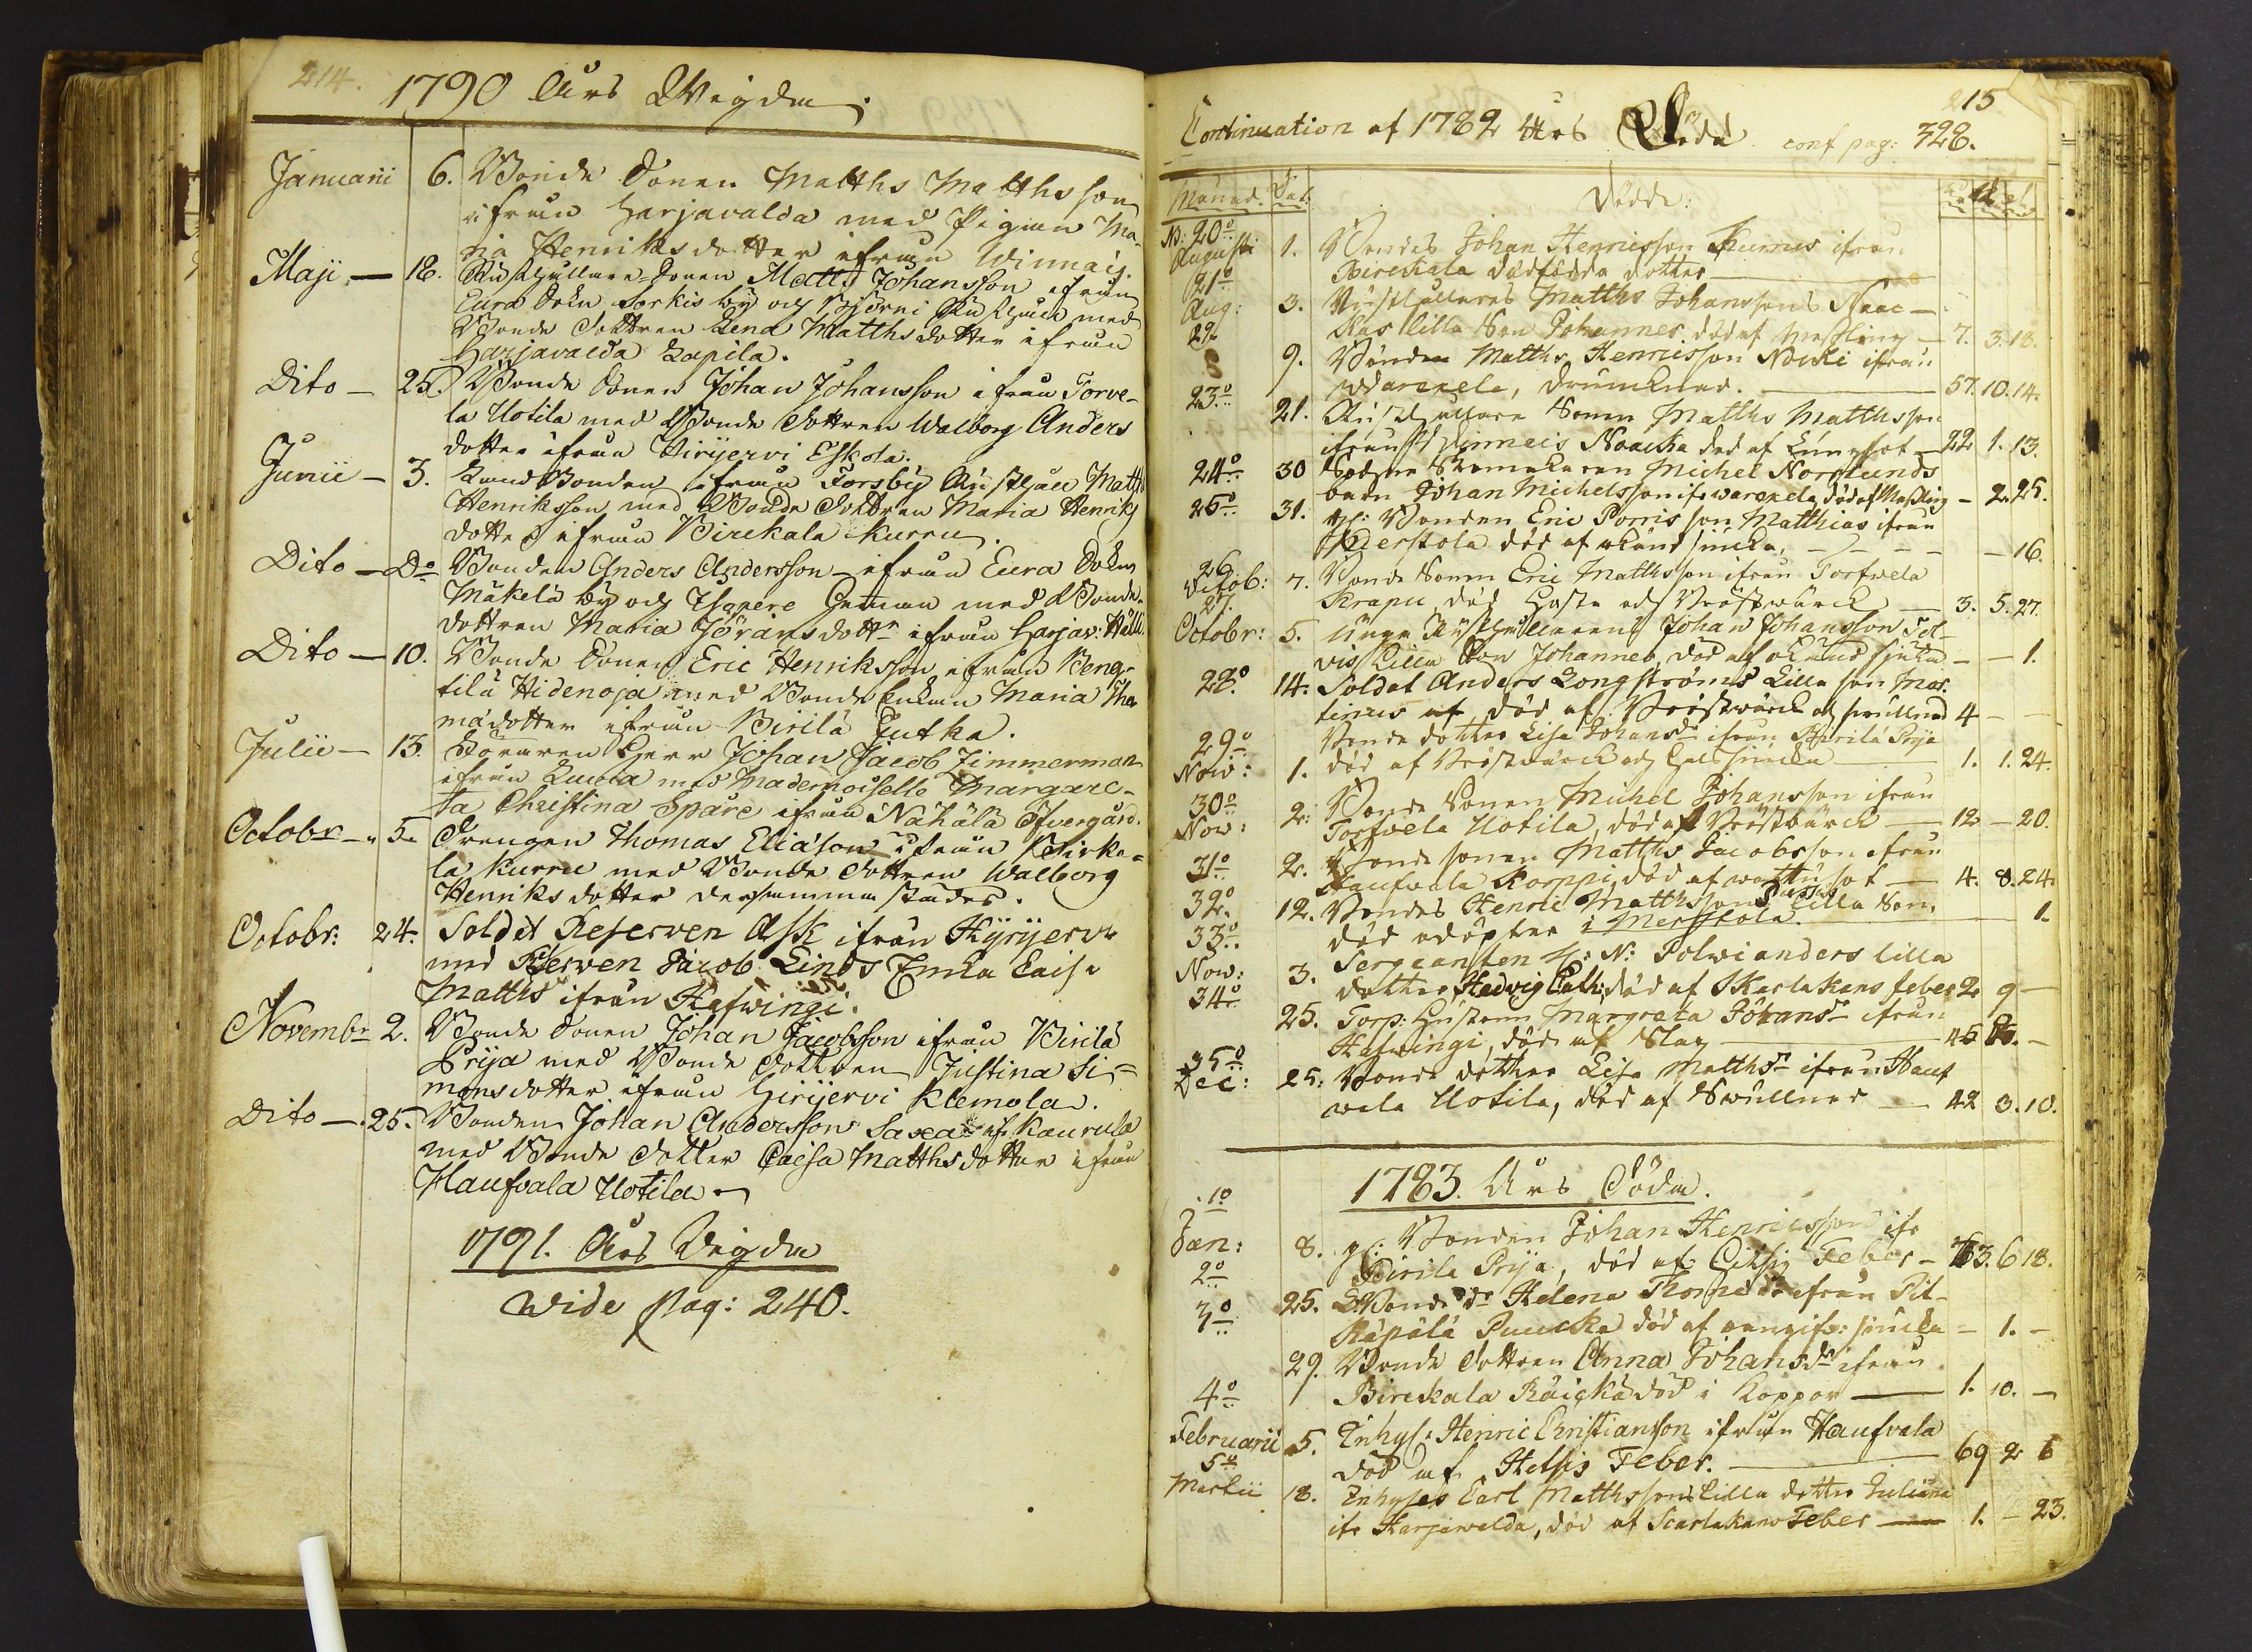 214.
1790 Års Wigda.
Januarii 6. Bonde Sonen Matths Matthsson
ifrån Harjavalda med Pigan Ma-
ria Henriksdotter ifrån Winnais.
Maji — 18. Rusthållare Sonen Matts Johansson ifrån
Eura Sokn Sorkis by och Rusthåll med
Bonde Dottren Lena Matthsdotter ifrån
Harjavalda Lapila.
Dito — 25. Bonde Sonen Johan Johansson ifrån Torve-
la Uotila med Bonde Dottren Walborg Anders
dotter ifrån Hirijervi Eskola.
Junii — 3. Landbonden ifrån Forsby Rusthåll Matth
Henriksson med Bonde Dottren Maria Henriks
dotter ifrån Birekala Kurru.
Dito — Do Bonden Anders Andersson ifrån Eura Sokn
Mäkelä by och Isopere hemman med Bonde
dottren Maria Jöransdottr ifrån Harjav: Hälli
Dito — 10. Bonde Sonen Eric Henriksson ifrån Beng-
tilä Hidenoja med Bonde Enkan Maria Tho
madotter ifrån Birilä Jutka.
Julii — 13. Herr Johan Jacob Zimmerman
ifrån med Mademoiselle Margare-
ta Christina Spåre ifrån Näkälä Öfvergård.
Octobr — 5. Drengen Thomas Eliason ifrån Birka-
la Kurru med Bonde Dottren Walborg
Henriksdotter dersammastädes.
Octobr: 24. Soldat Reserven Ask ifrån Kyrijervi
med Reserven Jacob Linds Enka Caisa
Matths ifrån Hafwingi.
Novembr 2. Bonde Sonen Johan Jacobsson ifrån Birilä
Prija med Bonde Dottren Justina Si-
monsdotter ifrån Hirijervi Klemola.
Dito — 25. Bonden Johan Andersson Saxa if. Kaurula
med Bonde Dotter Caisa Matthsdotter ifrån
Haufvala Uotila
1791. Års Vigda
Wide pag: 240.
215
Continuation af 1782 Års Döda conf pag: 328.
Månad. Dat. Döde:
N: 20o
Augusti 1. Bondes Johan Henricsson Kurrus ifrån
Birekala dödfödda dotter
21o
Aug: 3. Rusthållares Matths Johanssons Naac-
22 kas lilla Son Johannes död af Messling — 7. 3. 18.
9. Bonden Matths Henricsson Noucki ifrån
23o Warekela, drunknad. — 57. 10. 14.
21. Rusthållare Sonen Matths Matthsson
ifrån Winnais Naacka död af Lungsot — 22 1. 13.
24o 30 Michel Norrlunds
barn Johan Michelsson if. Warekela död af Messling — 2. 25.
25o 31. Bonden Eric Porris son Matthias ifrån
Merstola död af okänd siucka, — 16.
26
Octob: 7. Bonde Sonen Eric Matthsson ifrån Torfvela
Krapu, död Hosta och Bröstwärck — 3. 5. 27.
27.
Octobr: 5. unga Rusthållarens Johan Johansson Pol-
vis lilla Son Johannes, död af okänd siucka — 1.
28o 14. Soldat Anders Longströms Lilla son Mar-
tinus död af Bröstwärck och swullnad 4 —
29o Bonde dotter Lisa Johansdr ifrån Birilä Prija
Now: 1. död af Bröstwärck och halssiucka — 1. 1. 24.
30o
Now: 2. Bonde Sonen Michel Johansson ifrån
Torfvela Uotila, död af Bröstwärck — 12 — 20.
31o 2. Bonde sonen Matths Jacobsson ifrån
Haufvala Korppi, död af wattusot — 4. 8. 24.
32o 12. Bondes Henric Matthssons lilla Son.
33o död odöpter i Merstola. — 1.
Now: 3. Sergeanten H: N: Polwianders lilla
34o dotter Hedvig Cath: död af Skarlakans feber 2 9 —
25. Torp: Hustrun Margreta Johansdr ifrån
Hafwingi, död af Slag — 45
35o
Dec: 25: Bonde dotter Lisa Matthsdr ifrån Hauf
wala Uotila, död af Swullnad — 42 3. 10.
1783. Års Döda.
1o
Jan: 8. Bonden Johan Henricsson ifr
2o Birila Prija, död af Hitsig Feber — 63. 6 18.
3o 25. Bonde dr Helena Thomædr ifrån Pit-
käpälä Puucka död af siucka — 1. —
29. Bonde dottren Anna Johansdr ifrån
4o Birekala Räickä död i Koppor — 1. 10. —
Februarii 5. Inhys: Henric Christiansson ifrån Haufvala
5o död af Hetsig Feber. — 69 2 6
Martii 18. Inhyses Carl Matthssons lilla dotter Juliana
ifr Harjawalda, död af Scarlakans Feber — 1. — 23.